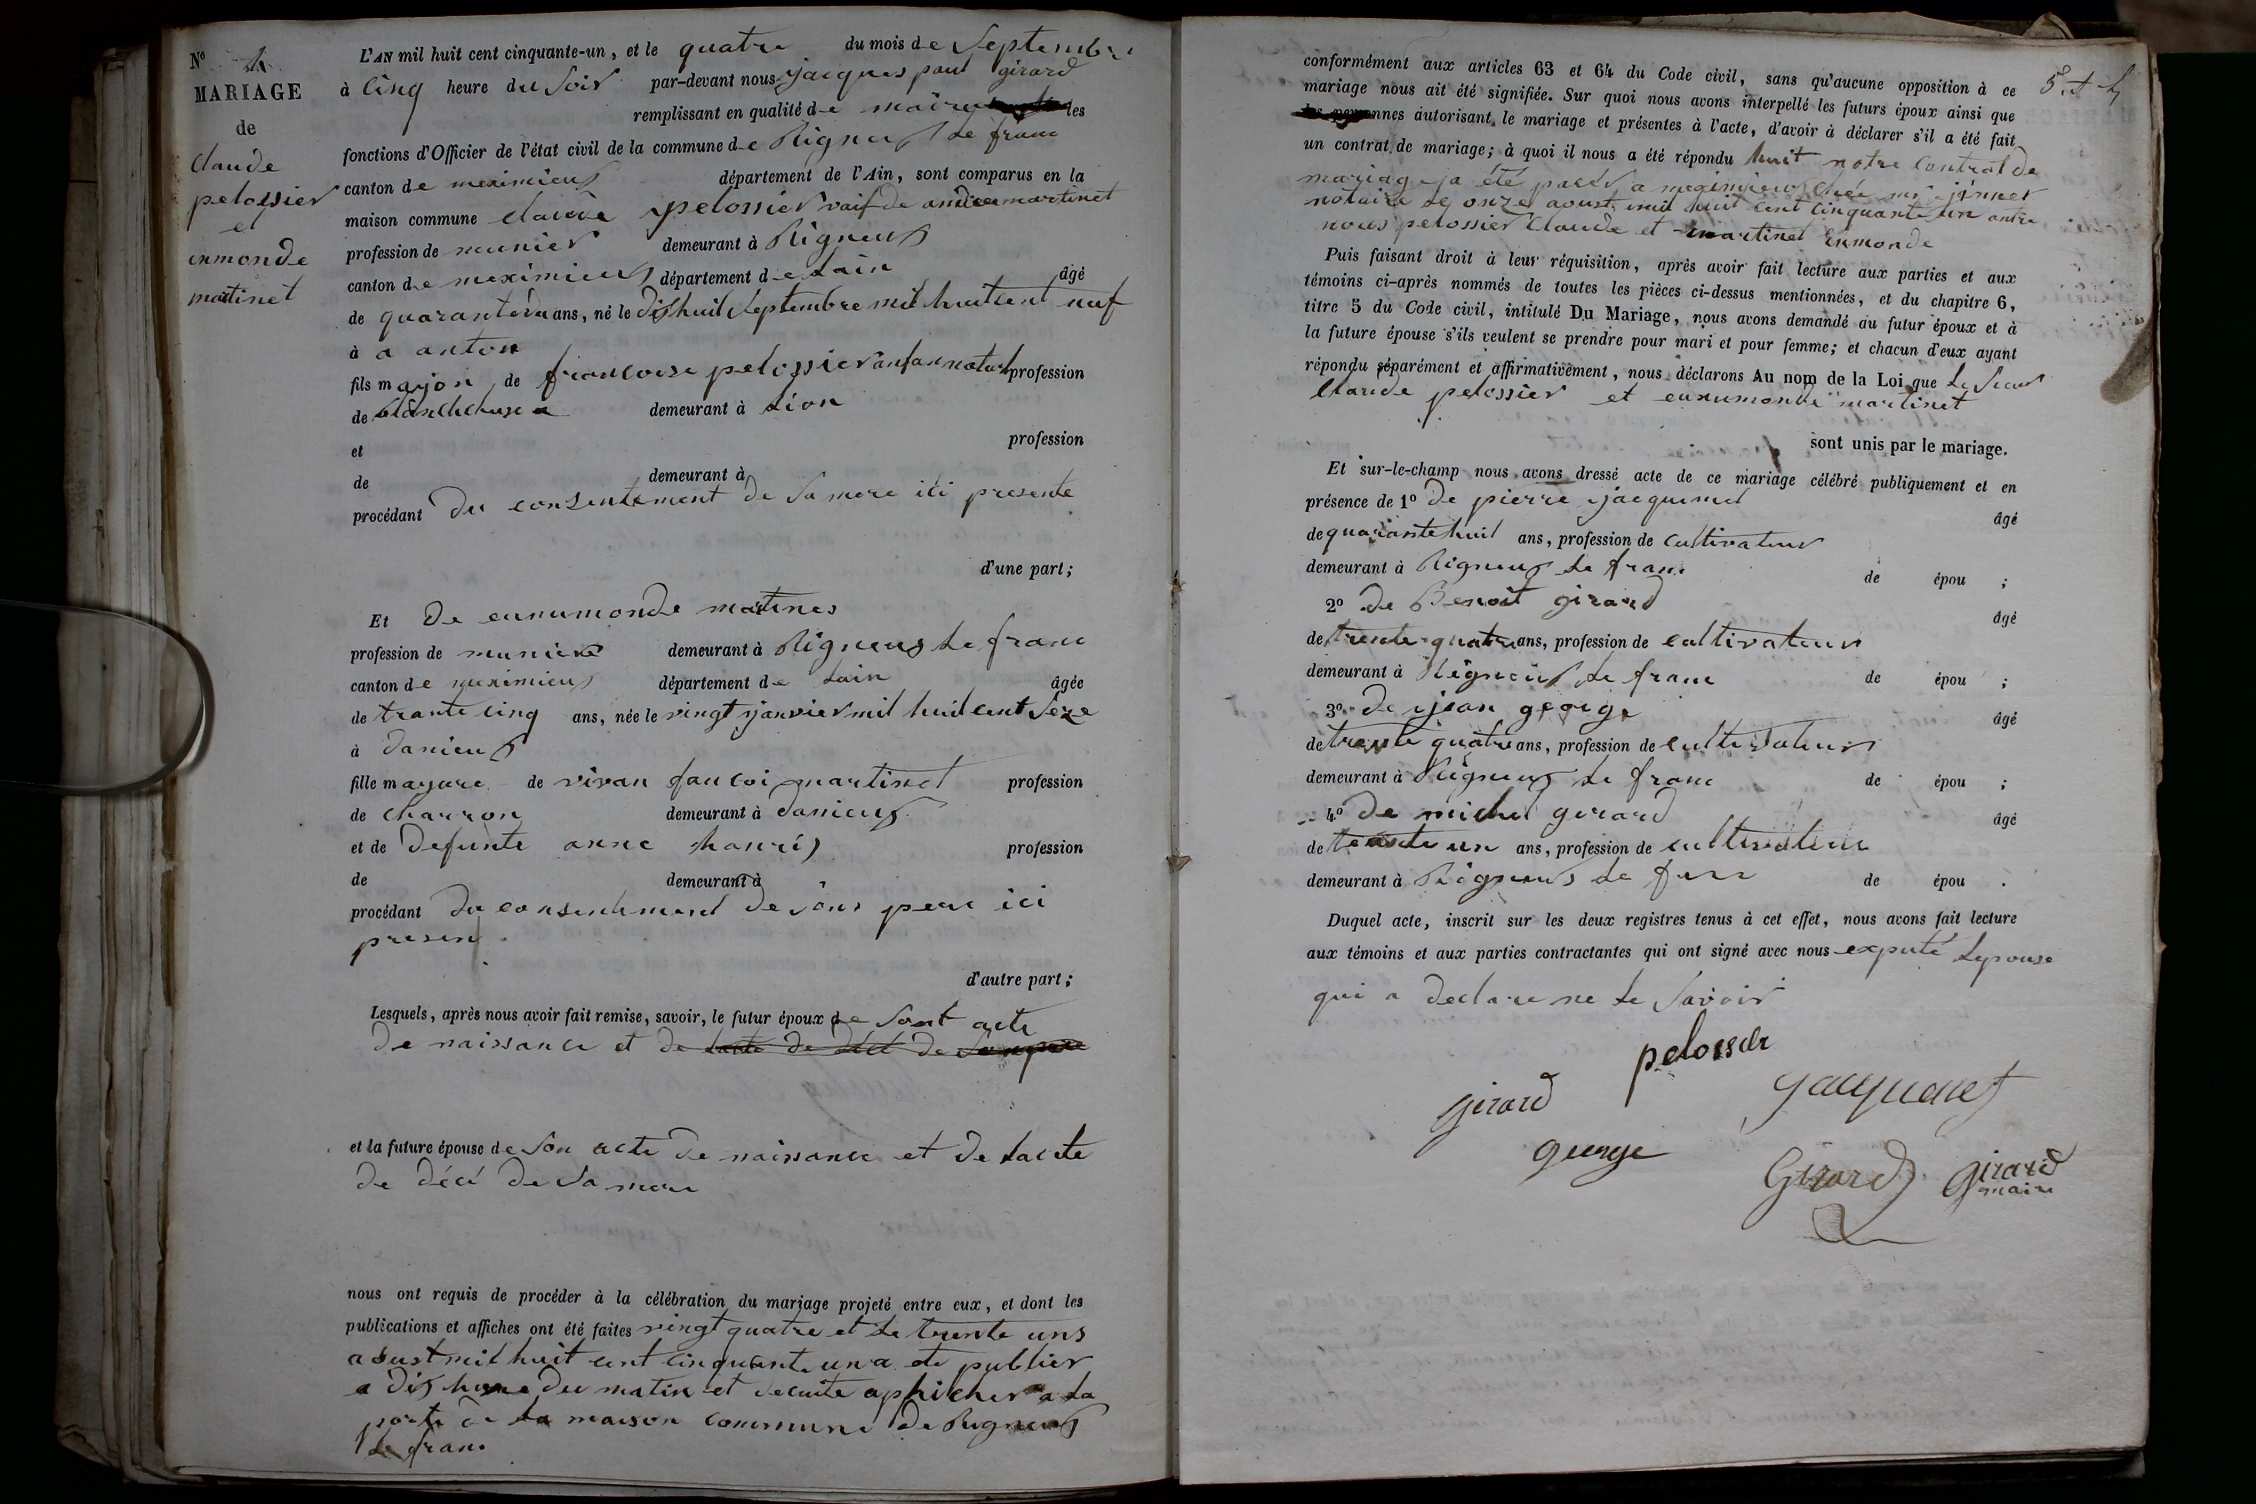 Nº 4
MARIAGE
de
Claude
pelossier
et
enmonde
martinet
L'AN mil huit cent cinquante-un, et le quatre du mois de Septembre
à Cinq heure du Soir par-devant nous jacques paul girard
remplissant en qualité de maire les
fonctions d'Officier de l'état civil de la commune de Rigneux le franc
canton de meximieux département de l'Ain, sont comparus en la
maison commune claude pelossier vaif de andrea martinet
profession de meunier demeurant à Rigneux
canton de meximieux département de Lain âgé
de quarante deu ans, né le dishuit Septembre mil huit cent neuf
à a anton
fils majon de francoise pelossier anfan naturel profession
de blanchuse a demeurant à Lion
et profession
de demeurant à
procédant du consentement de Sa mere ici presente
d'une part;
Et de ennumonde martines
profession de muniere demeurant à Rigneux Le franc
canton de meximieux département de Lain âgée
de trante cinq ans, née le vingt janvier mil huit cent Seze
à danieux
fille mayure de vivan fancoi martinet profession
de charron demeurant à danieux
et de defunte anne profession
de demeurant à
procédant du consentement de Son pere ici
presen
d'autre part;
Lesquels, après nous avoir fait remise, savoir, le futur époux de Sont acte
de naissance et de lacte de décé de Son pere
et la future épouse de Son acte de naissance et de lacte
de décé de Sa mere
nous ont requis de procéder à la célébration du mariage projeté entre eux, et dont les
publications et affiches ont été faites vingt quatre et Le trente uns
aoust mil huit cent cinquante un a ete publier
a dis heure du matin et de cuite aphicher a La
porte de La maison commune de Rigneux
Le franc
5et 4
conformément aux articles 63 et 64 du Code civil, sans qu'aucune opposition à ce
mariage nous ait été signifiée. Sur quoi nous avons interpellé les futurs époux ainsi que
les personnes autorisant le mariage et présentes à l'acte, d'avoir à déclarer s'il a été fait
un contrat de mariage; à quoi il nous a été répondu huit notre Contrat de
mariage a été passé a meximieux chée mr jinnet
notaire Le onze aoust mil huit cent cinquante un antre
nous pelossier Claude et martinet Enmonde
Puis faisant droit à leur réquisition, après avoir fait lecture aux parties et aux
témoins ci-après nommés de toutes les pièces ci-dessus mentionnées, et du chapitre 6,
titre 5 du Code civil, intitulé Du Mariage, nous avons demandé au futur époux et à
la future épouse s'ils veulent se prendre pour mari et pour femme; et chacun d'eux ayant
répondu séparément et affirmativement, nous déclarons Au nom de la Loi que Le Sieur
Claude pelossier et ennumonde martinet
sont unis par le mariage.
Et sur-le-champ nous avons dressé acte de ce mariage célébré publiquement et en
présence de 1º de pierre jacquemet
âgé
de quarante huit ans, profession de Cultivateur
demeurant à Rigneux Le franc de épou ;
2º de Benoit girard
âgé
de trente quatre ans, profession de cultivateur
demeurant à Rigneux Le franc de épou ;
3º de jean george
âgé
de trente quatre ans, profession de cultivateur
demeurant à Rigneux Le franc de épou ;
4º de michel gerard
âgé
de trente un ans, profession de cultivateur
demeurant à Rigneux Le franc de épou .
Duquel acte, inscrit sur les deux registres tenus à cet effet, nous avons fait lecture
aux témoins et aux parties contractantes qui ont signé avec nous exputé Lepouse
qui a declare ne Le Savoir
pelossier
girard
jacquemet
george
Girard
girard
maire